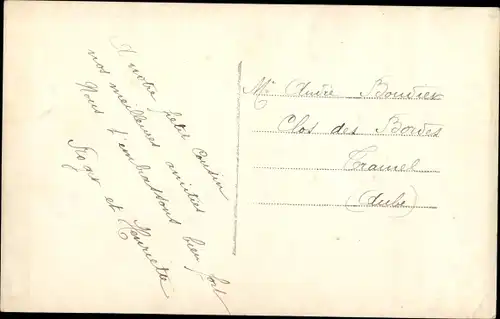 A notre petit cousin
nos meilleures amitiés
Nous t'embrassons bien fort
Roger et Henriette
Mr André Bouvier
Clos des Bordes
Tramel
(Aube)